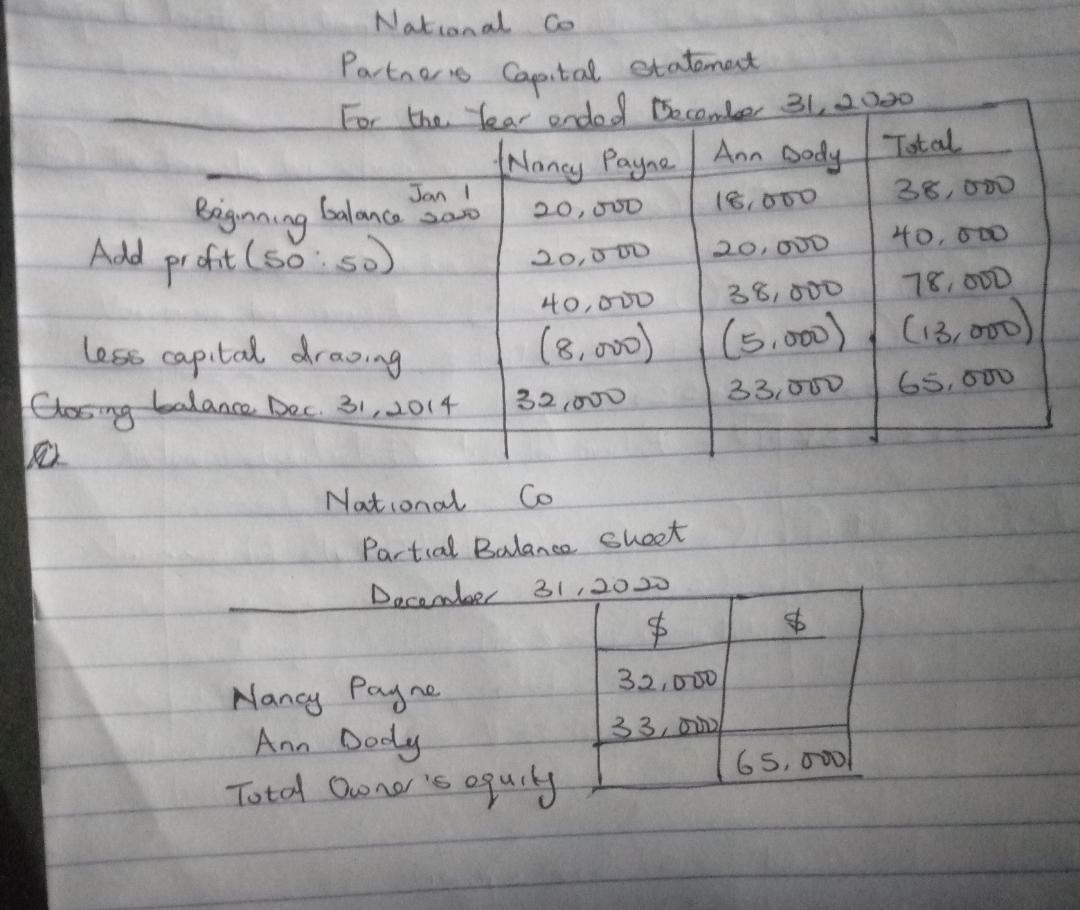 National Co
Partner's Capital Statement
For the Year ended December 31, 2020
Nancy Payne Ann Dody Total
Beginning balance Jan 1 2020 20,000 18,000 38,000
Add profit (50:50) 20,000 20,000 40,000
40,000 38,000 78,000
Less capital drawing (8,000) (5,000) (13,000)
Closing balance Dec. 31, 2014 32,000 33,000 65,000
National Co
Partial Balance Sheet
December 31, 2020
$ $
Nancy Payne 32,000
Ann Dody 33,000
Total Owner's equity 65,000